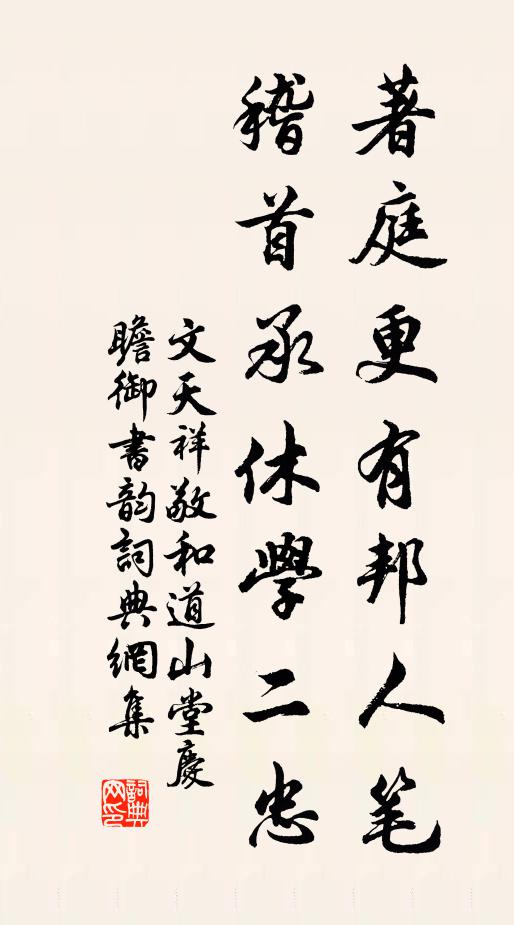 著庭更有邦人笔
稽首承休學二忠
文天祥敬和道山堂慶
瞻御書韵詞典網集
詞典網印